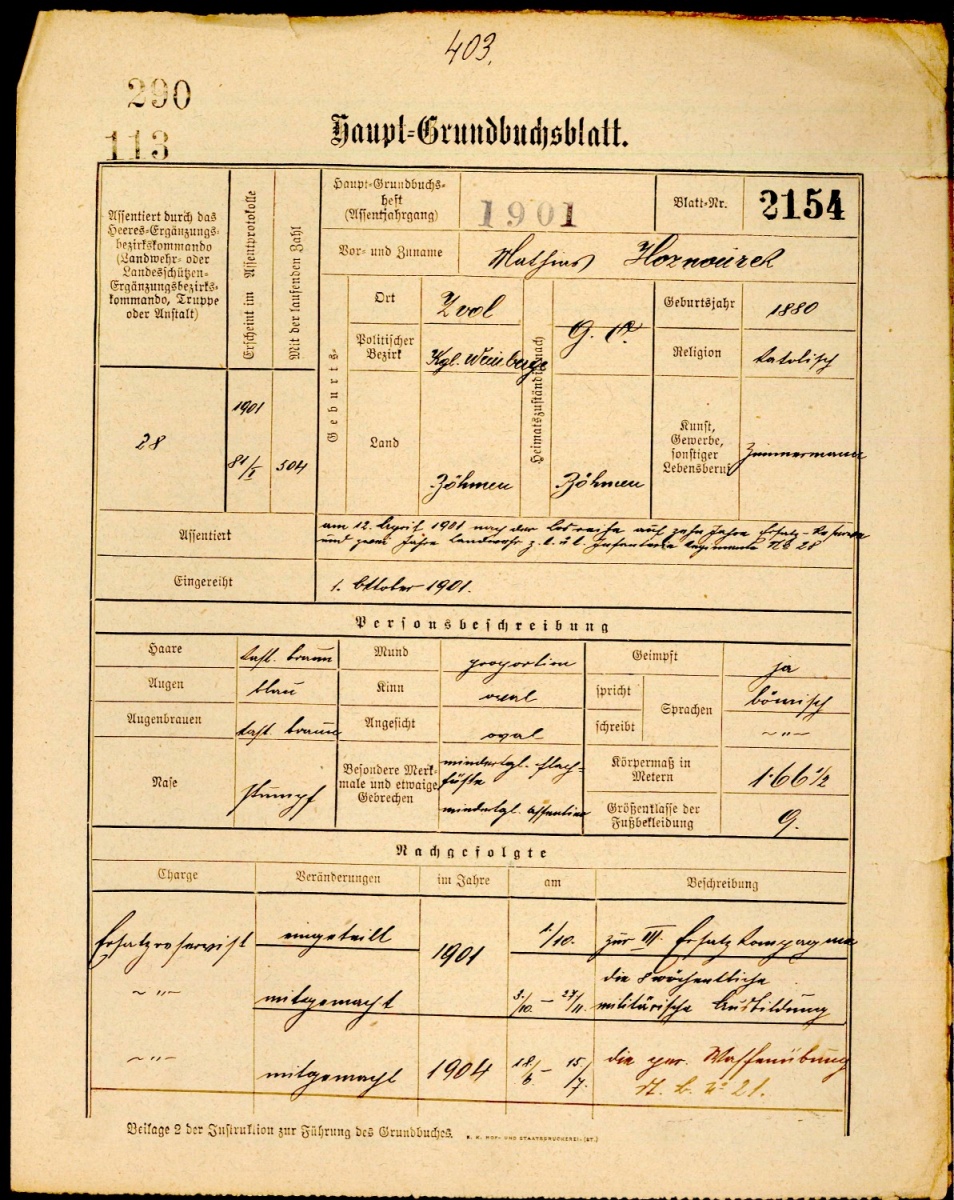 403.
290
113
Haupt-Grundbuchsblatt.
Assentiert durch das
Heeres-Ergänzungs-
bezirkskommando
(Landwehr- oder
Landesschützen-
Ergänzungsbezirks-
kommando, Truppe
oder Anstalt)
Erscheint im Assentprotokolle
Mit der laufenden Zahl
Haupt-Grundbuchs-
heft
(Assentjahrgang)
1901
Blatt-Nr.
2154
Vor- und Zuname
Mathias Hoznourek
Geburts-
Ort
Zvol
Politischer
Bezirk
Kgl. Weinberge
Land
Böhmen
Heimatszuständig nach
Böhmen
Geburtsjahr
1880
Religion
katolisch
Kunst,
Gewerbe,
sonstiger
Lebensberuf
Zimmermann
28
1901
81/I
504
Assentiert
am 12. April 1901 nach der Losreihe auf zehn Jahre Ersatz-Reserve
und zwei Jahre Landwehr z. k. u. k. Infanterie Regimente No 28
Eingereiht
1. Oktober 1901.
Personsbeschreibung
Haare
kast. braun
Mund
proportion
Geimpft
ja
Augen
blau
Kinn
oval
spricht
schreibt
Sprachen
böhmisch
~ " ~
Augenbrauen
kast braun
Angesicht
oval
Nase
stumpf
Besondere Merk-
male und etwaige
Gebrechen
mindertgl. Flach-
füße
mindertgl.
Körpermaß in
Metern
1·66 1/2
Größenklasse der
Fußbekleidung
9.
Nachgefolgte
Charge
Veränderungen
im Jahre
am
Beschreibung
Ersatzreservist
eingeteilt
1901
1/10.
zur III. Ersatz Kompagnie
~ " ~
mitgemacht
3/10. – 27/11.
die 8 wöchentliche
militärische Ausbildung
~ " ~
mitgemacht
1904
18/6. – 15/7.
die per. Waffenübung
21.
Beilage 2 der Instruktion zur Führung des Grundbuches.
K. K. HOF- UND STAATSDRUCKEREI. (ST.)